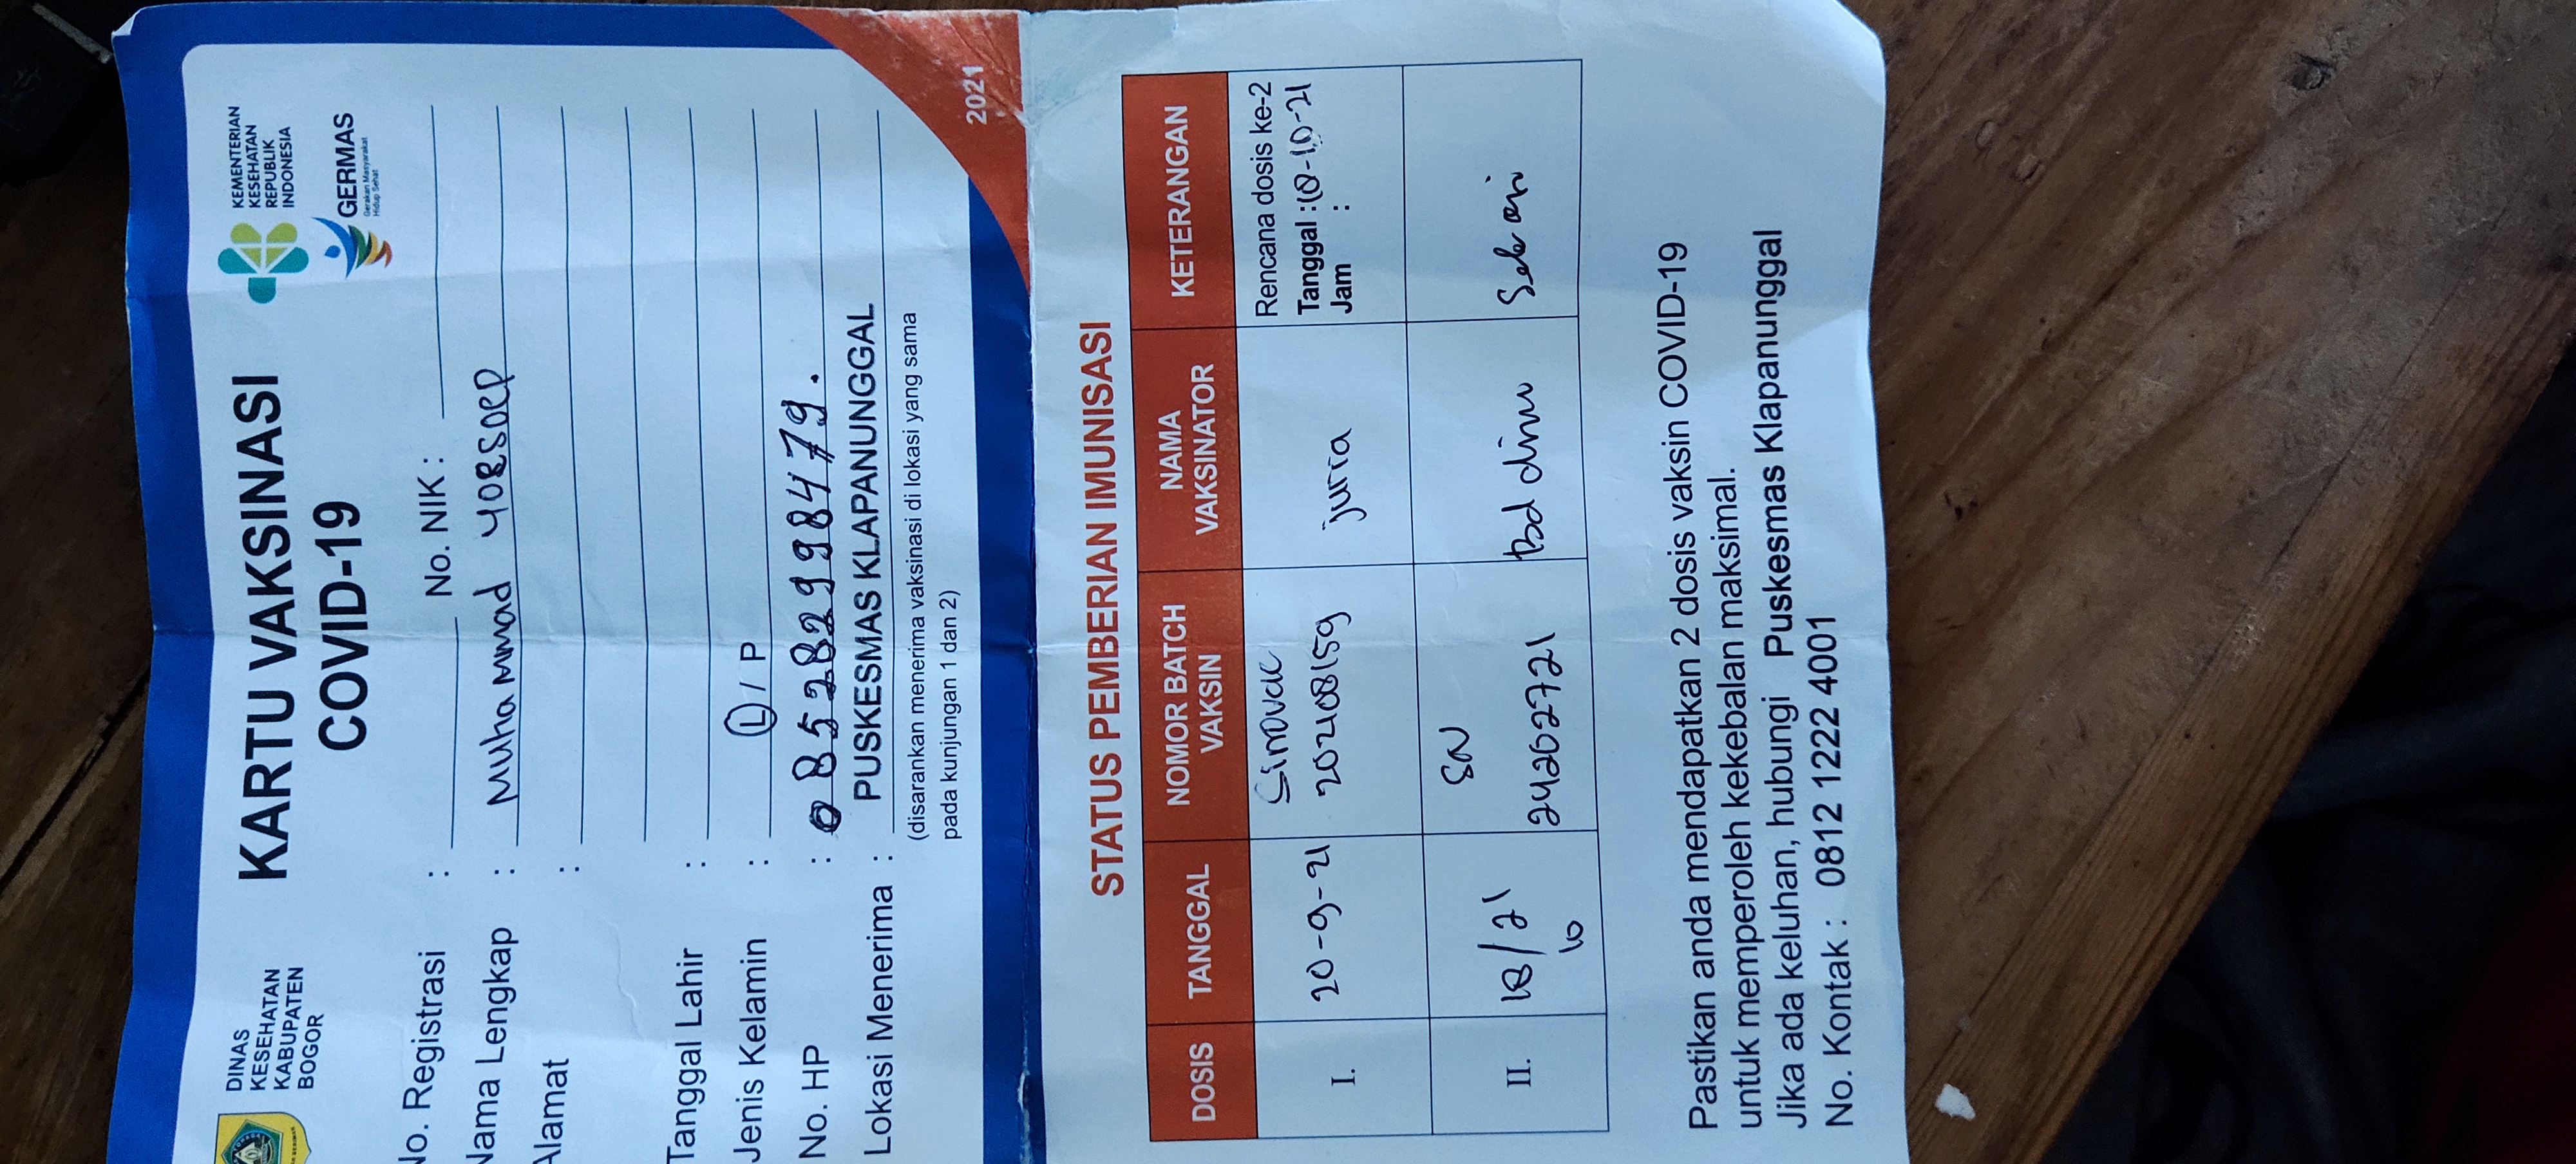 DINAS
KESEHATAN
KABUPATEN
BOGOR
KARTU VAKSINASI
COVID-19
KEMENTERIAN
KESEHATAN
REPUBLIK
INDONESIA
GERMAS
Gerakan Masyarakat
Hidup Sehat
No. Registrasi : No. NIK :
Nama Lengkap : Muhammad YOESOEP
Alamat :
Tanggal Lahir :
Jenis Kelamin : L / P
No. HP : 085282998479.
Lokasi Menerima : PUSKESMAS KLAPANUNGGAL
(disarankan menerima vaksinasi di lokasi yang sama
pada kunjungan 1 dan 2)
2021
STATUS PEMBERIAN IMUNISASI
DOSIS TANGGAL NOMOR BATCH VAKSIN NAMA VAKSINATOR KETERANGAN
I. 20-9-21 Sinovac 202108159 jurra Rencana dosis ke-2
Tanggal : 18-10-21
Jam :
II. 18/10 21 SN 24202721 Bd
Pastikan anda mendapatkan 2 dosis vaksin COVID-19
untuk memperoleh kekebalan maksimal.
Jika ada keluhan, hubungi Puskesmas Klapanunggal
No. Kontak : 0812 1222 4001